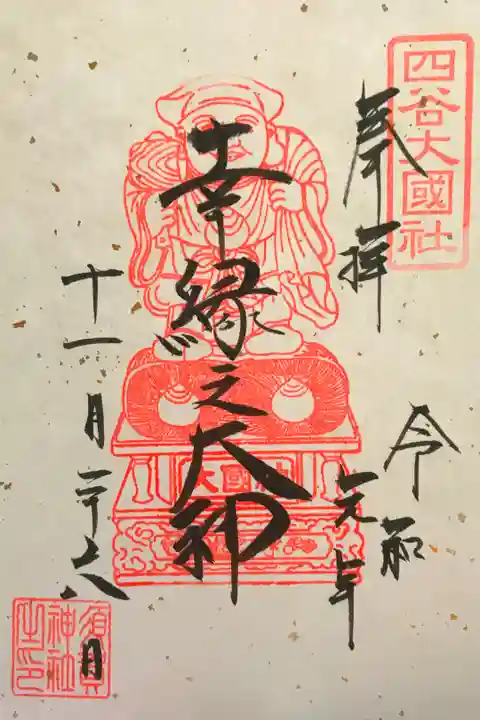 四谷大國社
奉拝
令和元年
幸縁之大神
大國社
十一月二十八
月
須賀神社之印